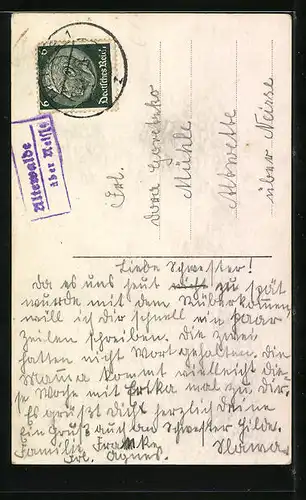 6 Deutsches Reich 6
Altewalde
über Neisse
Frl.
Dora
Mühle
Altwette
über Neisse
Liebe Schwester!
Da es uns heut nicht zu spät
wurde mit dem Rüberkommen,
will ich dir schnell ein paar
Zeilen schreiben. Die zwei
hatten nicht Wort gehalten. Die
Mama kommt vielleicht die-
se Woche mit Erika mal zu Dir.
Es grüßt Dich herzlich Deine
Ein Gruß auch an Schwester Hilde.
Familie Franke
Frl. Agnes.